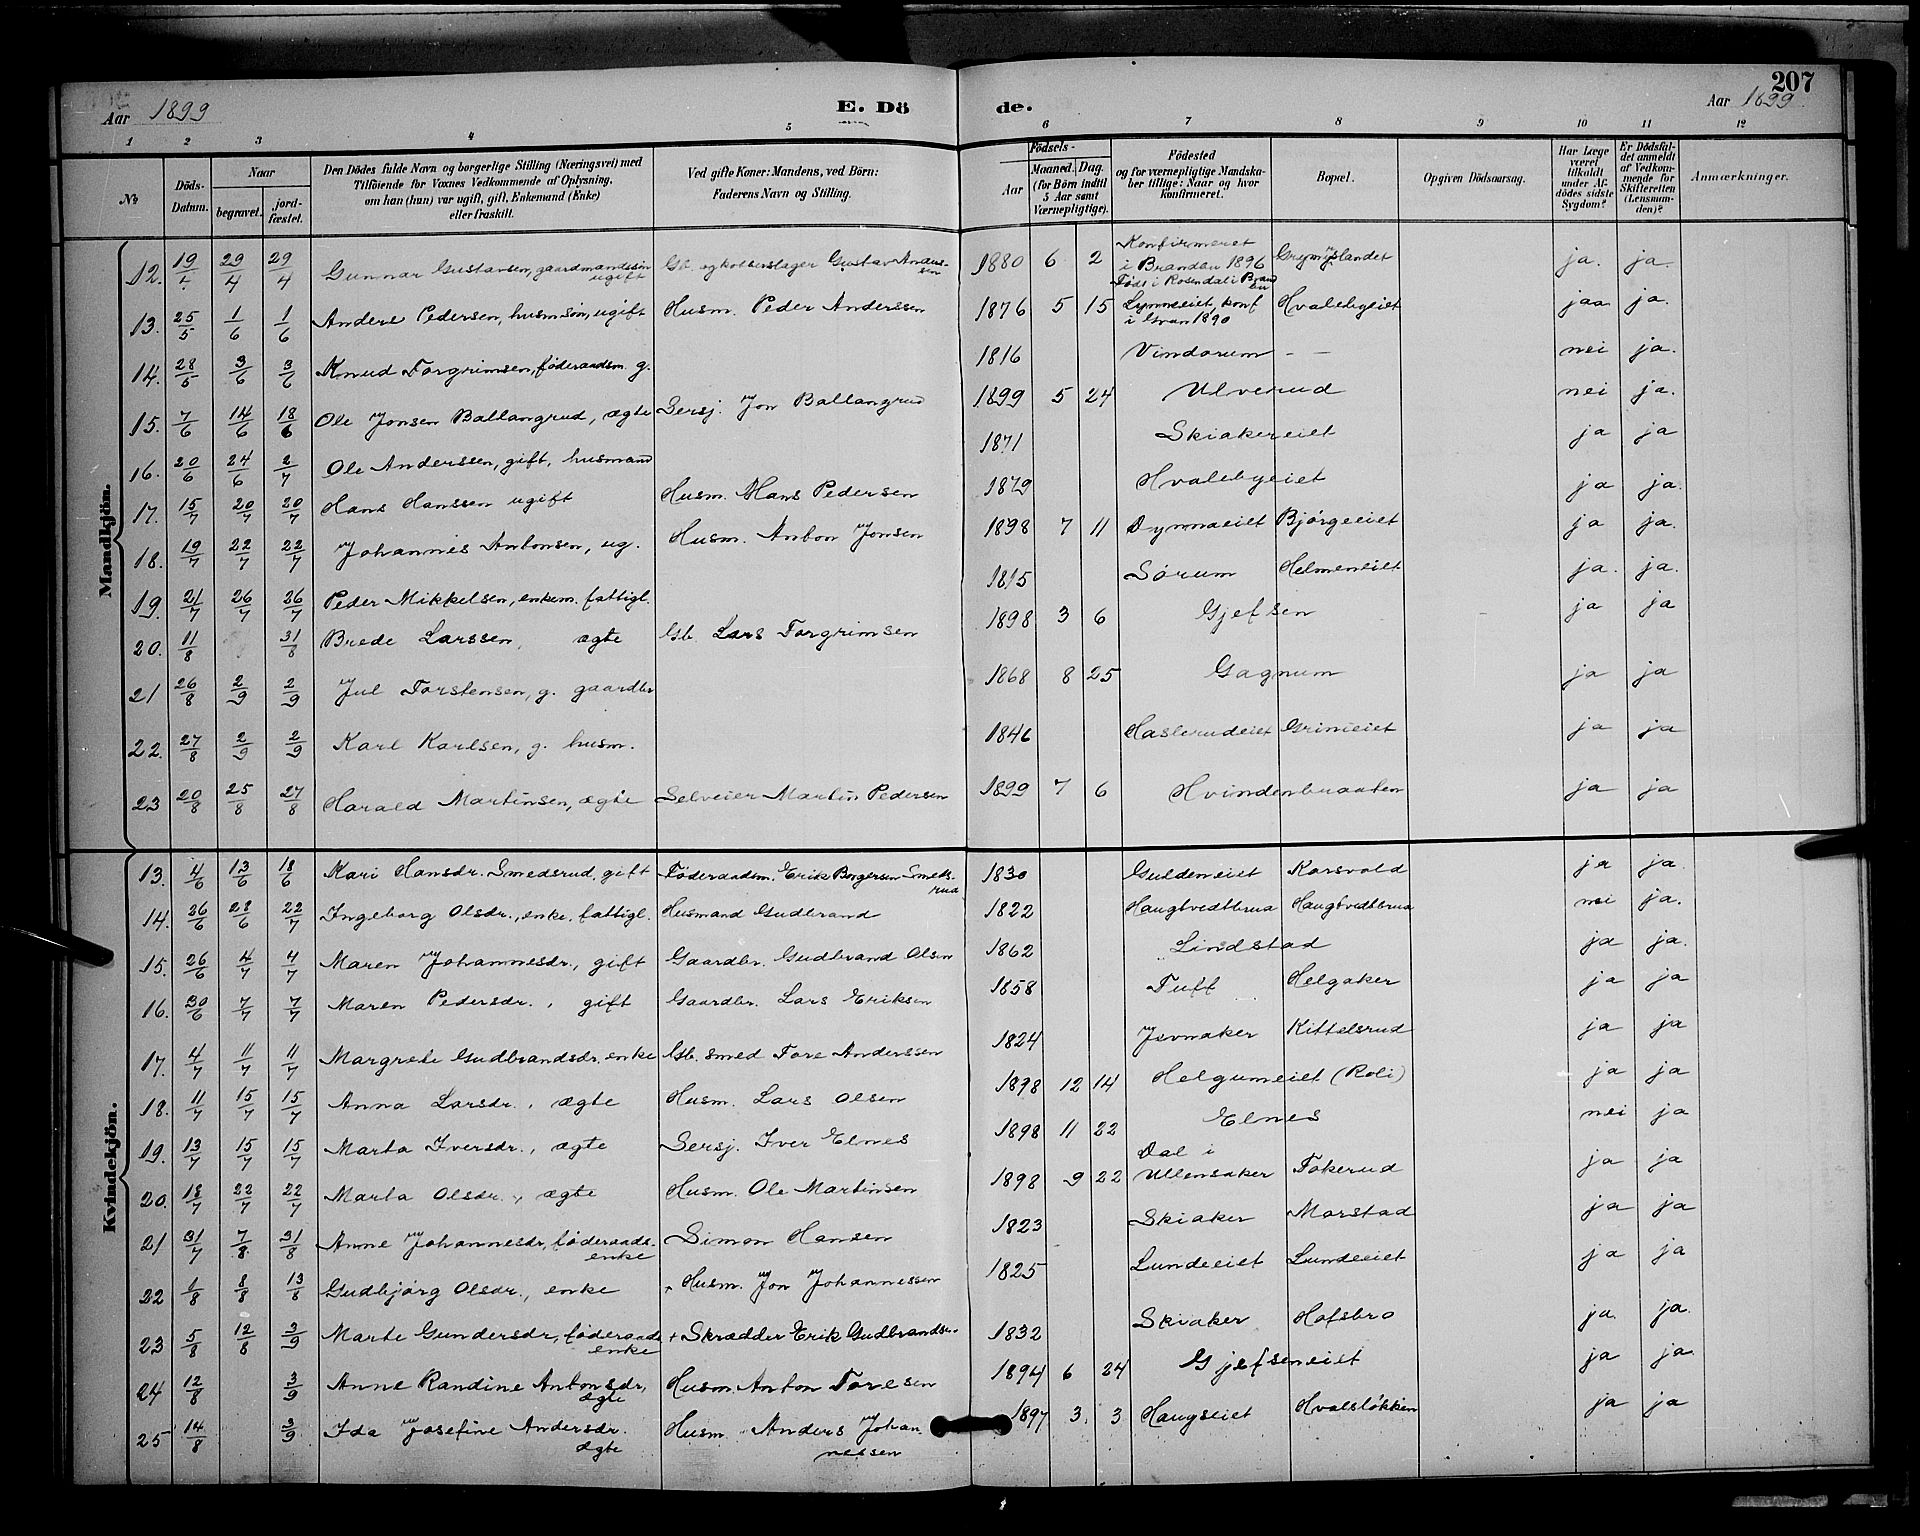 207
Aar 1899 E. Dö de. Aar 1899
1 2 3 4 5 6 7 8 9 10 11 12
No
Döds-Datum.
Naar begravet. jordfæstet.
Den Dödes fulde Navn og borgerlige Stilling (Næringsvei) med Tilföiende for Voxnes Vedkommende af Oplysning, om han (hun) var ugift, gift, Enkemand (Enke) eller fraskilt.
Ved gifte Koner: Mandens, ved Börn: Faderens Navn og Stilling.
Födsels- Aar Maaned. Dag. (for Börn indtil 5 Aar samt Værnepligtige).
Födested og for værnepligtige Mandskaber tillige: Naar og hvor konfirmeret.
Bopæl.
Opgiven Dödsaarsag.
Har Læge været tilkaldt under Afdödes sidste Sygdom?
Er Dödsfaldet anmeldt af Vedkommende for Skifteretten (Lensmanden)?
Anmærkninger.
Mandkjön.
12. 19/4 29/4 29/4 Gunnar Gustavsen, gaardmandssøn ugift Gb. og kobberslager Gustav Andersen 1880 6 2 Konfirmeret i Brandbu 1896 Født i Rosendal i Brandbu Grymyrlandet ja. ja.
13. 25/5 1/6 1/6 Anders Pedersen, husmsøn, ugift Husm. Peder Anderssen 1876 5 15 Lynneeiet, konf i Gran 1890 Hvalebyeiet jaa ja.
14. 28/5 3/6 3/6 Knud Torgrimsen, føderaadsm. g. 1816 Vindorum - - nei ja.
15. 7/6 14/6 18/6 Ole Jonsen Ballangrud, ægte Sersj. Jon Ballangrud 1899 5 24 Ulverud nei ja.
16. 20/6 24/6 2/7 Ole Anderssen, gift, husmand 1871 Skiakereiet ja ja
17. 15/7 20/7 20/7 Hans Hanssen ugift Husm. Hans Pedersen 1879 Hvalebyeiet ja ja.
18. 19/7 22/7 22/7 Johannes Antonsen, ug. Husm. Anton Jonsen 1898 7 11 Dynnaeiet Bjørgeeiet ja ja.
19. 21/7 26/7 26/7 Peder Mikkelsen, enkem. fattigl. 1815 Sørum Helmeneiet ja. ja.
20. 11/8 31/8 Brede Larssen, ægte Gb. Lars Torgrimsen 1898 3 6 Gjefsen ja ja
21 26/8 2/9 2/9 Jul Torstensen, g. gaardbr 1868 8 25 Gagnum ja ja
22. 27/8 2/9 2/9 Karl Karlsen, g. husm. 1846 Haslerudeiet Grinieiet ja ja
23 20/8 25/8 27/8 Harald Martinsen, ægte Selveier Martin Pedersen 1899 7 6 Hvindenbraaten ja ja
Kvindekjön.
13. 4/6 13/6 18/6 Kari Hansdr. Smedsrud, gift Føderaadsm. Erik Borgersen Smedsrud 1830 Guldeneiet Korsvold ja ja.
14. 26/6 28/6 22/7 Ingeborg Olsdr., enke, fattigl. Husmand Gudbrand 1822 Haugtvedtbrua Haugtvedtbrua nei ja.
15. 26/6 4/7 4/7 Maren Johannesdr., gift Gaardbr. Gudbrand Olsen 1862 Lindstad ja ja.
16. 30/6 7/7 7/7 Maren Pedersdr., gift Gaardbr. Lars Eriksen 1858 Tuft Helgaker ja ja
17. 4/7 11/7 11/7 Margrete Gudbrandsdr. enke Gb. smed Tore Anderssen 1824 Jevnaker Kittelsrud ja ja
18. 11/7 15/7 15/7 Anna Larsdr., ægte Husm. Lars Olsen 1898 12 14 Helgumeiet (Roli) ja ja
19. 13/7 15/7 15/7 Marta Iversdr., ægte Sersj. Iver Elnes 1898 11 22 Elnes nei ja
20. 18/7 22/7 22/7 Marta Olsdr., ægte Husm. Ole Martinsen 1898 9 22 Dal i Ullensaker Tokerud ja ja
21 31/7 7/8 31/8 Anne Johannesdr, føderaads-enke Simon Hansen 1823 Skiaker Morstad ja ja
22 1/8 8/8 13/8 Gudbjørg Olsdr., enke Husm. Jon Johannessen 1825 Lundeeiet Lundeeiet ja ja
23 5/8 12/8 3/9 Marte Gundersdr, føderaads enke + Skrædder Erik Gudbrandsen 1832 Skiaker Hofsbro ja. ja.
24 12/8 3/9 Anne Randine Antonsdr, ægte Husm. Anton Toresen 1894 6 24 Gjefseneiet ja ja.
25 14/8 3/9 Ida Josefine Andersdr. ægte Husm. Anders Johannessen 1897 3. 3 Haugseiet Hvalsløkken ja ja